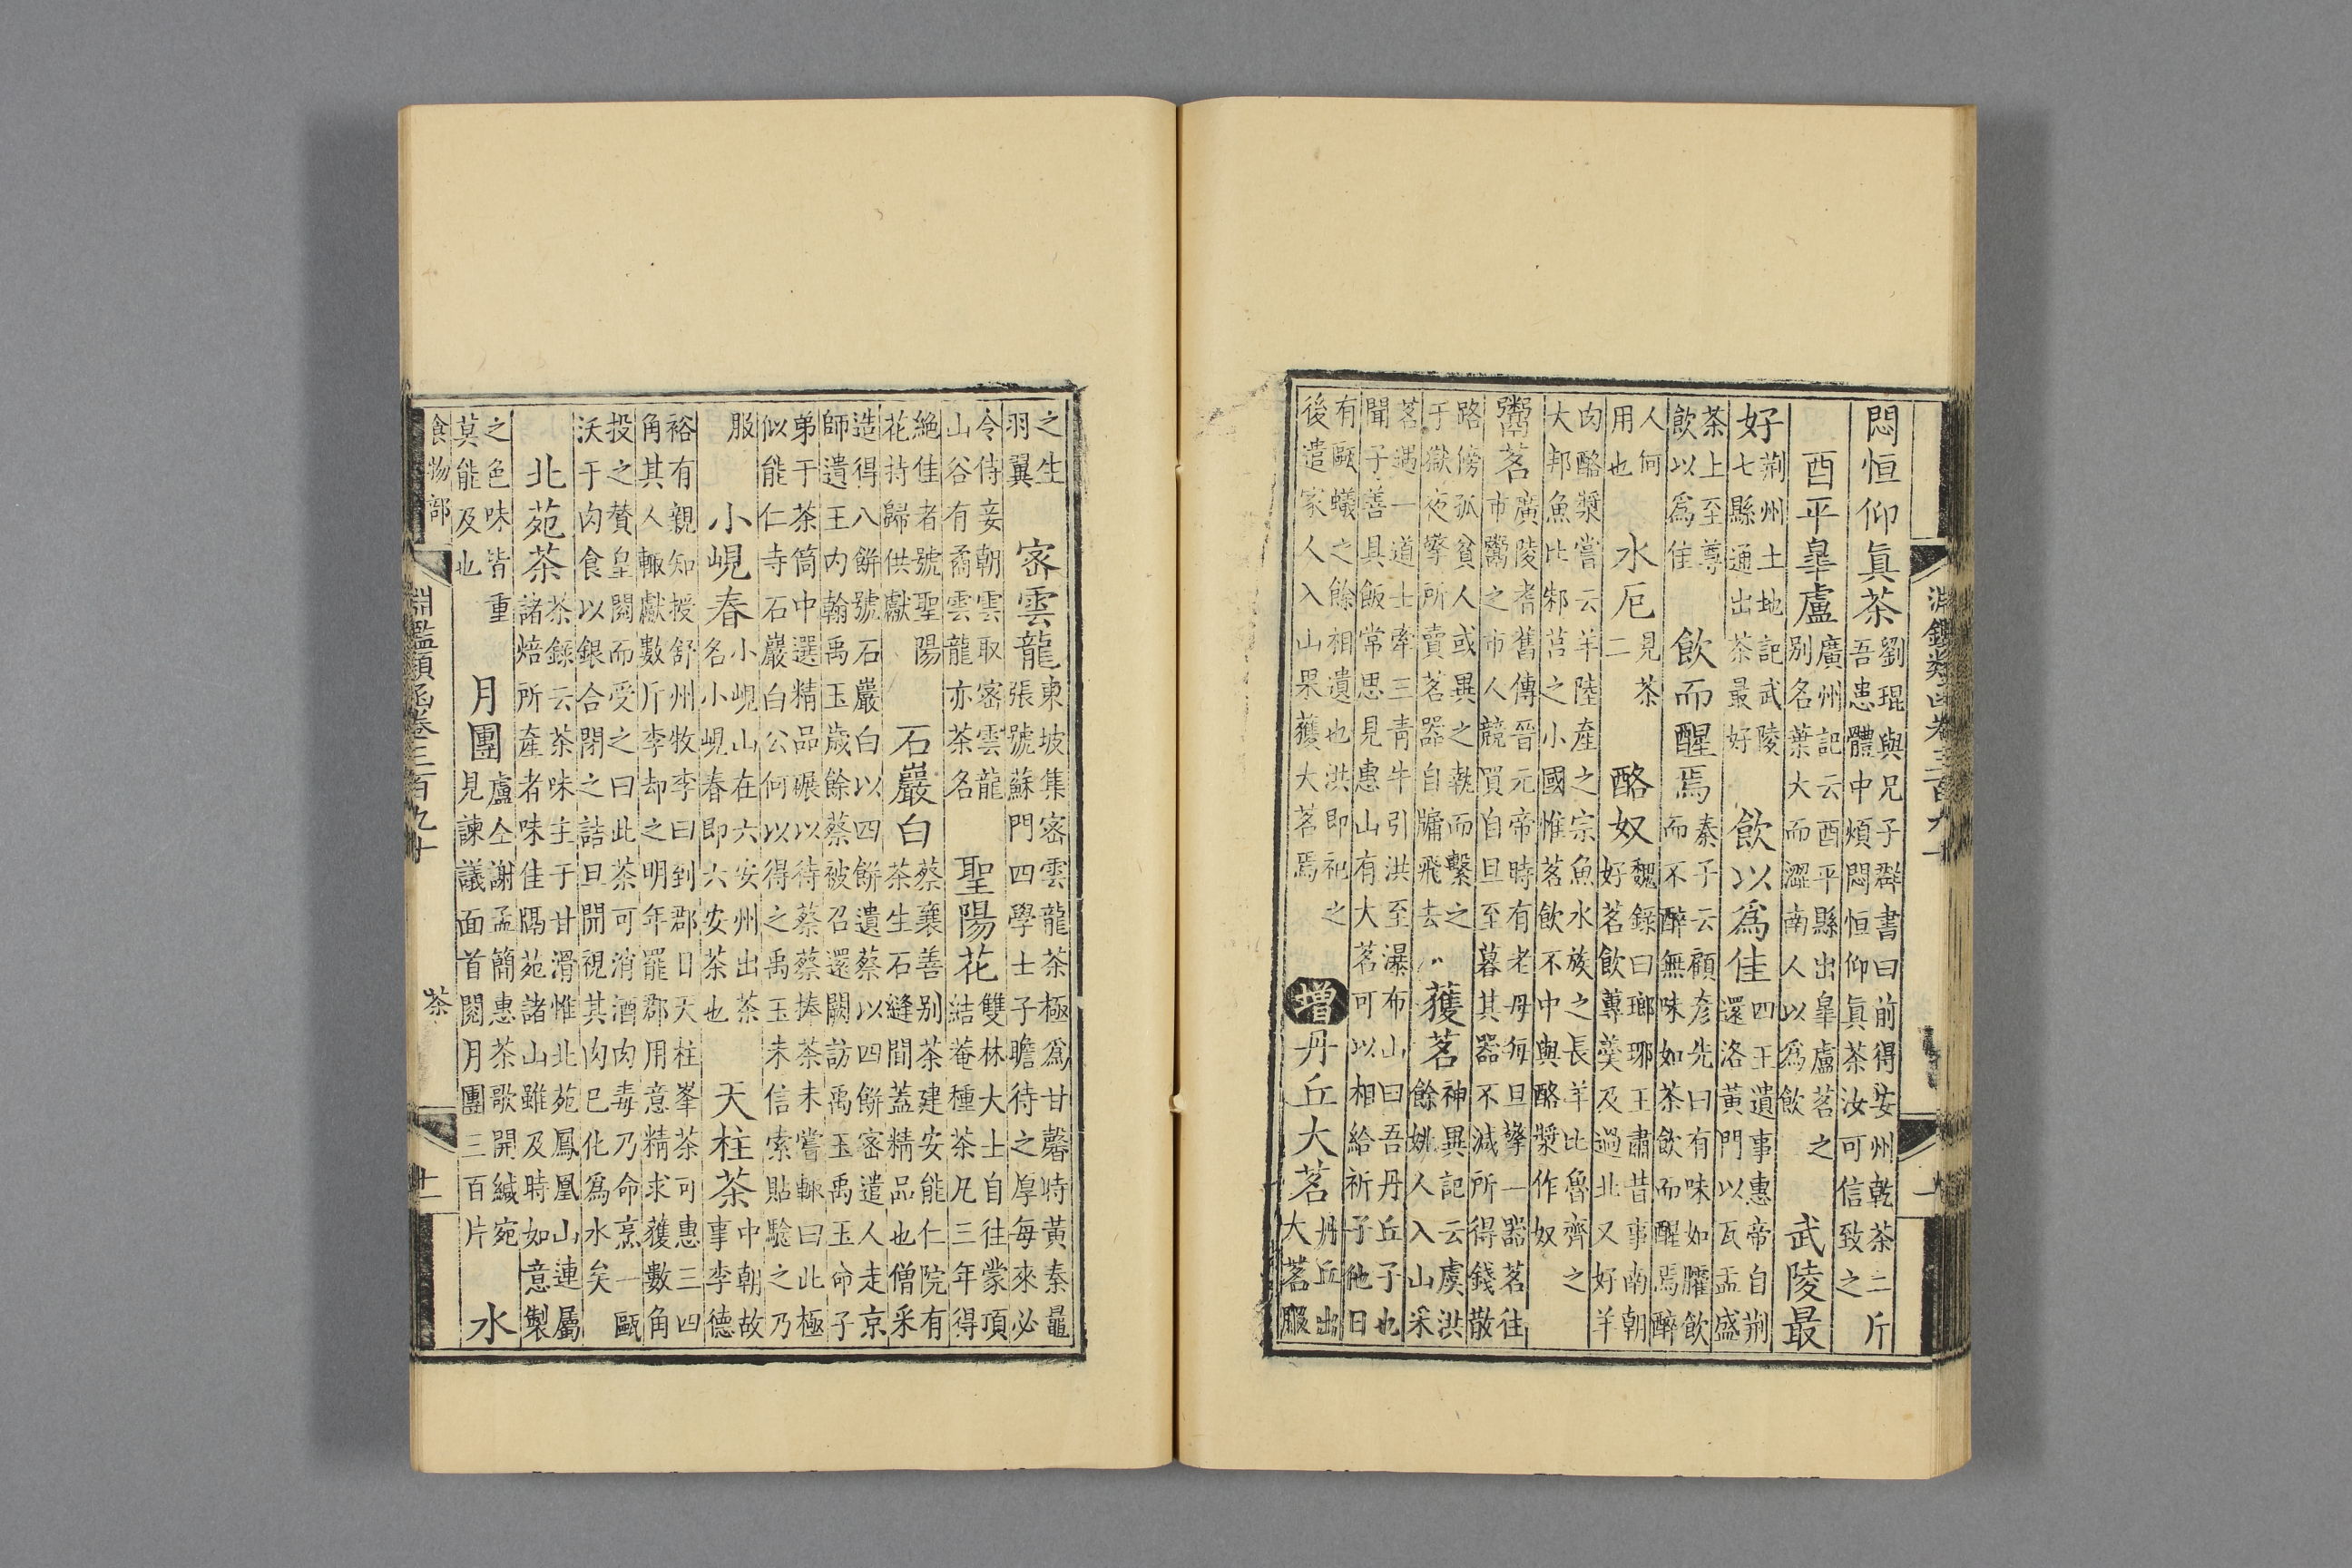 淵鑑類函卷三百九十
悶恒仰眞茶
劉琨與兄子群書曰前得安州乾茶二斤
吾患體中煩悶恒仰眞茶汝可信致之
酉平臯盧
廣州記云酉平縣出臯盧茗之
别名葉大而澀南人以爲飲
武陵最
好
荆州土地記武陵
七縣通出茶最好
飲以爲佳
四王遺事惠帝自荆
還洛黃門以瓦盂盛
茶上至尊
飲以爲佳
飲而醒焉
秦子云顧彥先曰有味如臛飲
而不醉無味如茶飲而醒焉醉
人何
用也
水厄
見茶
二
酪奴
魏錄曰瑯琊王肅昔事南朝
好茗飲蓴羹及過北又好羊
肉酪漿嘗云羊陸產之宗魚水族之長羊比魯齊之
大邦魚比邾莒之小國惟茗飲不中與酪漿作奴
鬻茗
廣陵耆舊傳晉元帝時有老母每旦擎一器茗往
市鬻之市人競買自旦至暮其器不減所得錢散
路傍孤貧人或異之執而繫之
于獄夜擎所賣茗器自牖飛去
獲茗
神異記云虞洪
餘姚人入山采
茗遇一道士牽三青牛引洪至瀑布山曰吾丹丘子也
聞子善具飯常思見惠山有大茗可以相給祈子他日
有甌蟻之餘相遺也洪即祀之
後遣家人入山果獲大茗焉
增
丹丘大茗
丹丘出
大茗服
之生
羽翼
密雲龍
東坡集密雲龍茶極爲甘馨時黃秦鼂
張號蘇門四學士子瞻待之厚每來必
令侍妾朝雲取密雲龍
山谷有矞雲龍亦茶名
聖陽花
雙林大士自往蒙頂
結菴種茶凡三年得
絕佳者號聖陽
花持歸供獻
石巖白
蔡襄善别茶建安能仁院有
茶生石縫間蓋精品也僧采
造得八餅號石巖白以四餅遺蔡以四餅密遣人走京
師遺王内翰禹玉歲餘蔡被召還闕訪禹玉禹玉命子
弟于茶筒中選精品碾以待蔡蔡捧茶未嘗輙曰此極
似能仁寺石巖白公何以得之禹玉未信索貼驗之乃
服
小峴春
小峴山在六安州出茶
名小峴春即六安茶也
天柱茶
中朝故
事李德
裕有親知授舒州牧李曰到郡日天柱峯茶可惠三四
角其人輙獻數斤李却之明年罷郡用意精求獲數角
投之贊皇閱而受之曰此茶可消酒肉毒乃命烹一甌
沃于肉食以銀合閉之詰旦開視其肉已化爲水矣
北苑茶
茶錄云茶味主于甘滑惟北苑鳳凰山連屬
諸焙所產者味佳隔苑諸山雖及時如意製
之色味皆重
莫能及也
月團
盧仝謝孟簡惠茶歌開緘宛
見諫議面首閱月團三百片
水
食物部
淵鑑類函卷三百九十
茶
十一